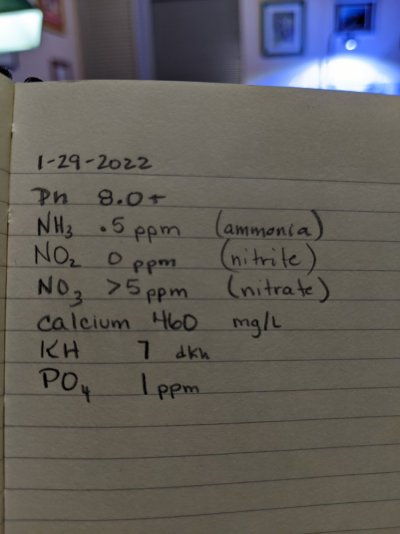 1-29-2022
Ph 8.0+
NH3 .5 ppm (ammonia)
NO2 0 ppm (nitrite)
NO3 >5 ppm (nitrate)
Calcium 460 mg/L
KH 7 dkh
PO4 1 ppm